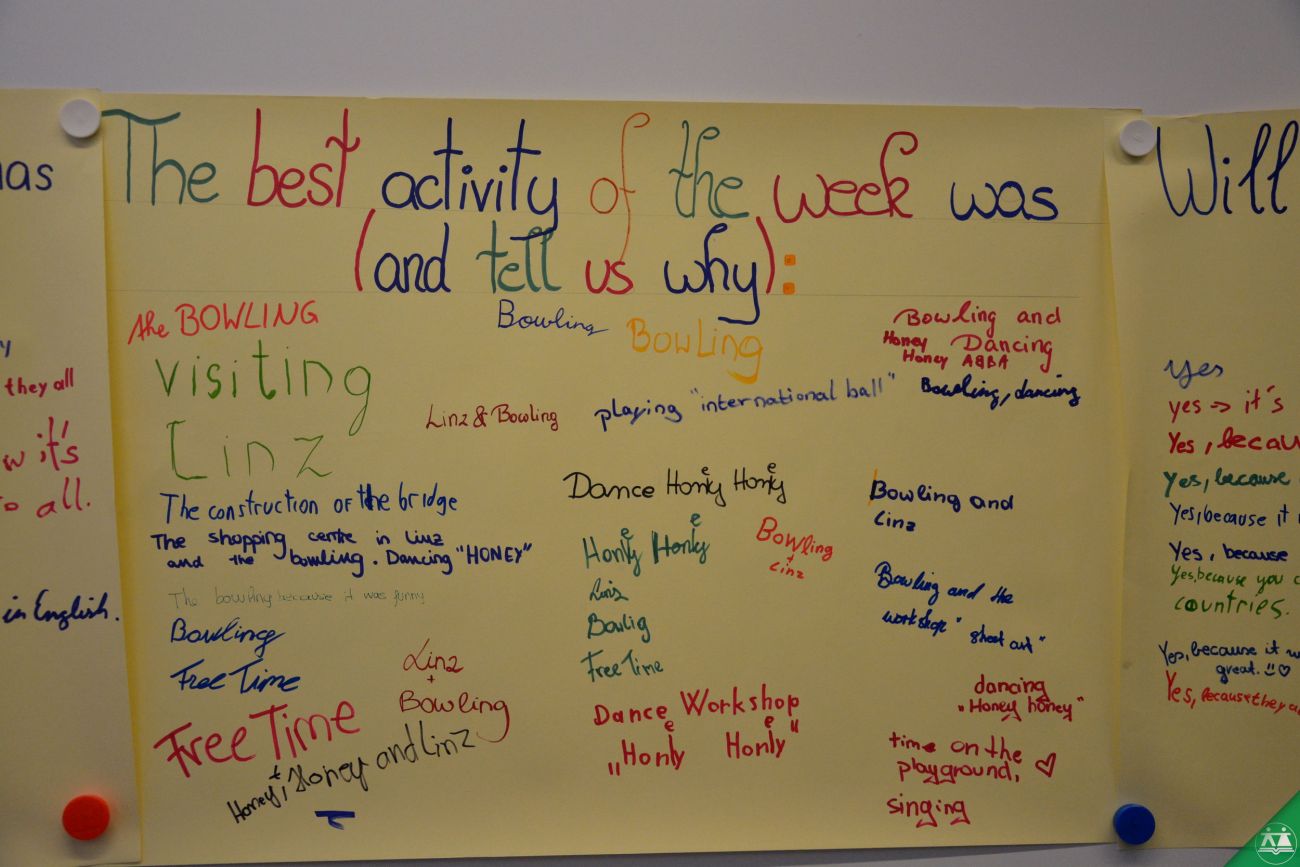 The best activity of the week was
(and tell us why):
the BOWLING
visiting
Linz
The construction of the bridge
The shopping centre in Linz
and the bowling. Dancing "HONEY"
The bowling because it was funny
Bowling
Free Time
Free Time
Honey, Honey and Linz
Linz
+
Bowling
Bowling
Bowling
Linz & Bowling
playing "international ball"
Dance Honey Honey
Honey Honey
Bowling
+
Linz
Linz
Bowlig
Free Time
Dance Workshop
"Honey Honey"
Bowling and
Honey Dancing
Honey ABBA
Bowling, dancing
Bowling and
Linz
Bowling and the
workshop "
dancing
"Honey honey"
time on the
playground, ♡
singing
as
y
they all
w it's
o all.
in English.
Will
yes
yes → it's
Yes, becau
Yes, because
Yes, because it
Yes, because
Yes because you c
countries.
Yes, because it w
great. ♡
Yes, because they a